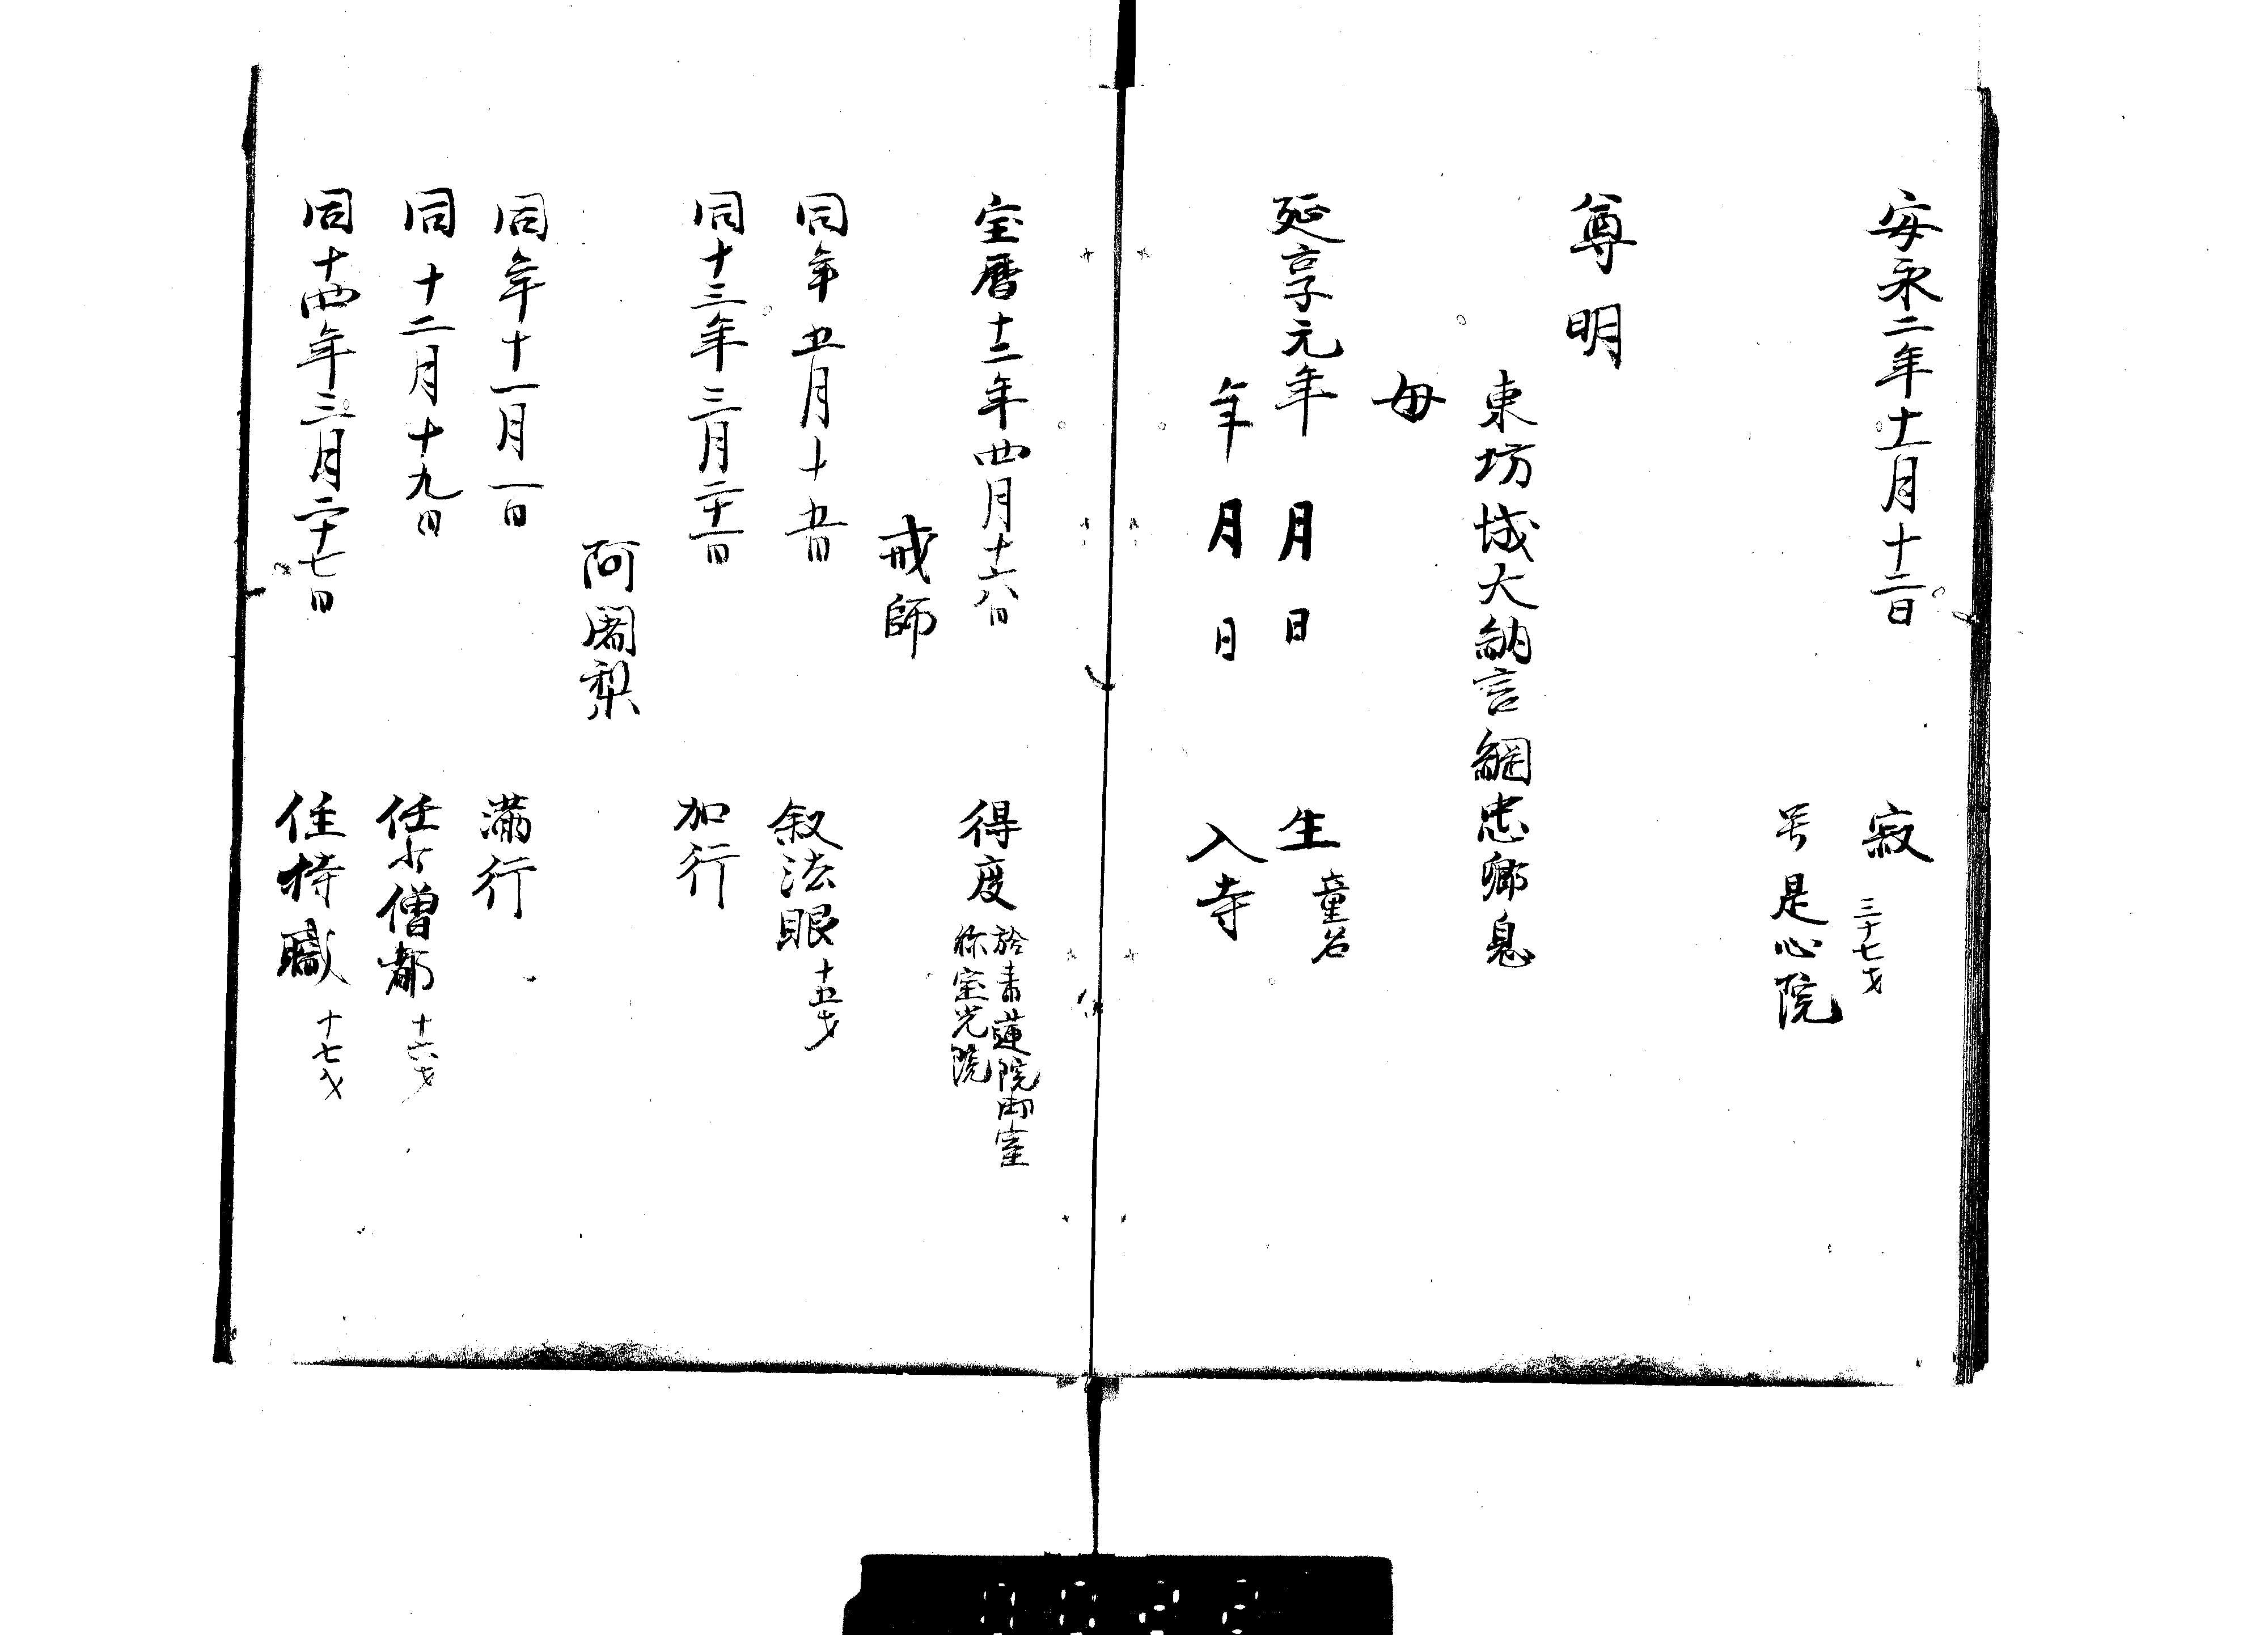 安永二年十一月十二日　寂　三十七才
号是心院
尊明
東坊城大納言綱忠卿息
母
延享元年　月　日　生　童名
年　月　日　入寺
宝暦十二年四月十六日　得度　於青蓮院御室
称宝光院
戒師
同年五月十五日　叙法眼　十五才
同十三年三月二十一日　加行
阿闍梨
同年十一月一日　満行
同十二月十九日　任少僧都　十六才
同十四年三月二十七日　住持職　十七才